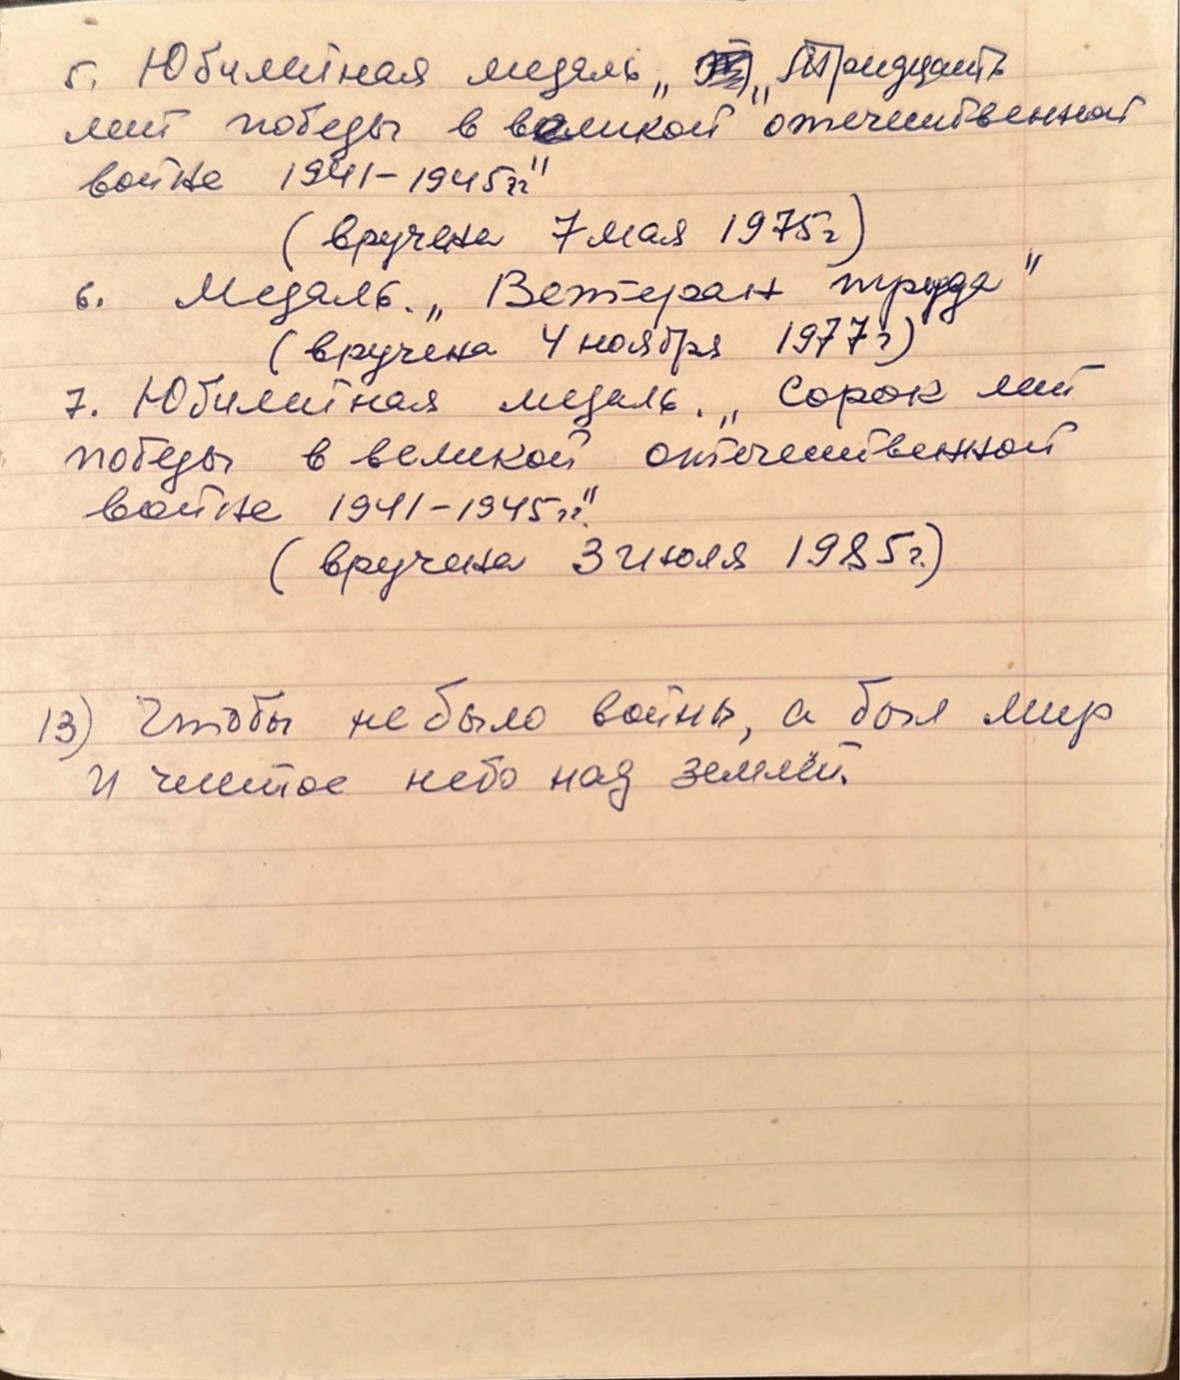 5. Юбилейная медаль „ „ Тридцать
лет победы в великой отечественной
войне 1941-1945гг"
(вручена 7 мая 1975г)
6. Медаль. „ Ветеран труда"
(вручена 4 ноября 1977г)
7. Юбилейная медаль. „ Сорок лет
победы в великой отечественной
войне 1941-1945гг."
(вручена 3 июля 1985г.)
13) Чтобы не было войны, а был мир
и чистое небо над землёй.